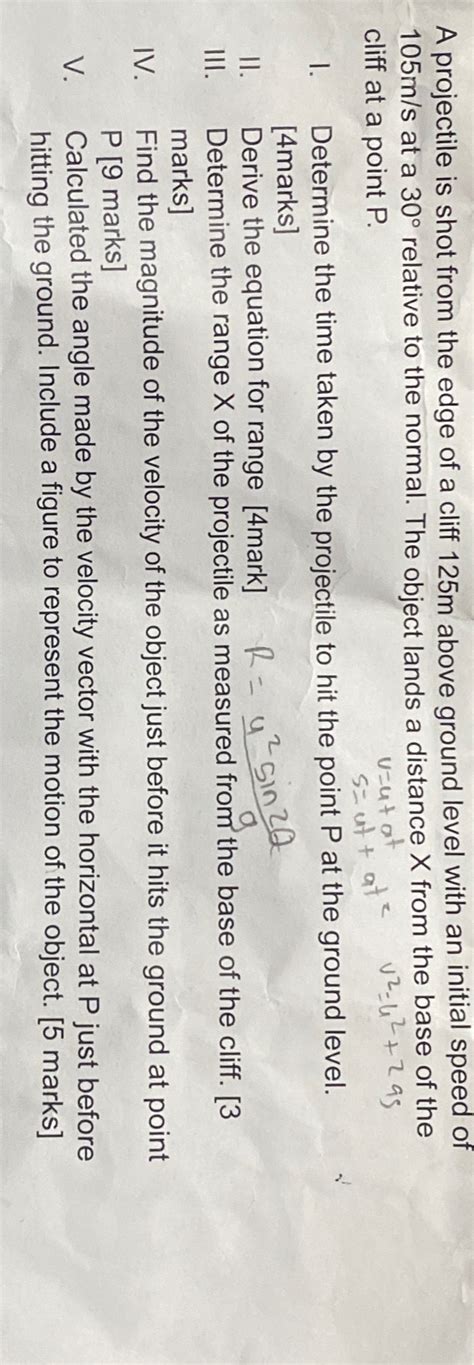 A projectile is shot from the edge of a cliff 125m above ground level with an initial speed of
105m/s at a 30° relative to the normal. The object lands a distance X from the base of the
cliff at a point P.
v=u+at
s=ut + at² v²=u²+2as
I. Determine the time taken by the projectile to hit the point P at the ground level.
[4marks]
II. Derive the equation for range [4mark] R = u² sin2θ
g
III. Determine the range X of the projectile as measured from the base of the cliff. [3
marks]
IV. Find the magnitude of the velocity of the object just before it hits the ground at point
P [9 marks]
V. Calculated the angle made by the velocity vector with the horizontal at P just before
hitting the ground. Include a figure to represent the motion of the object. [5 marks]